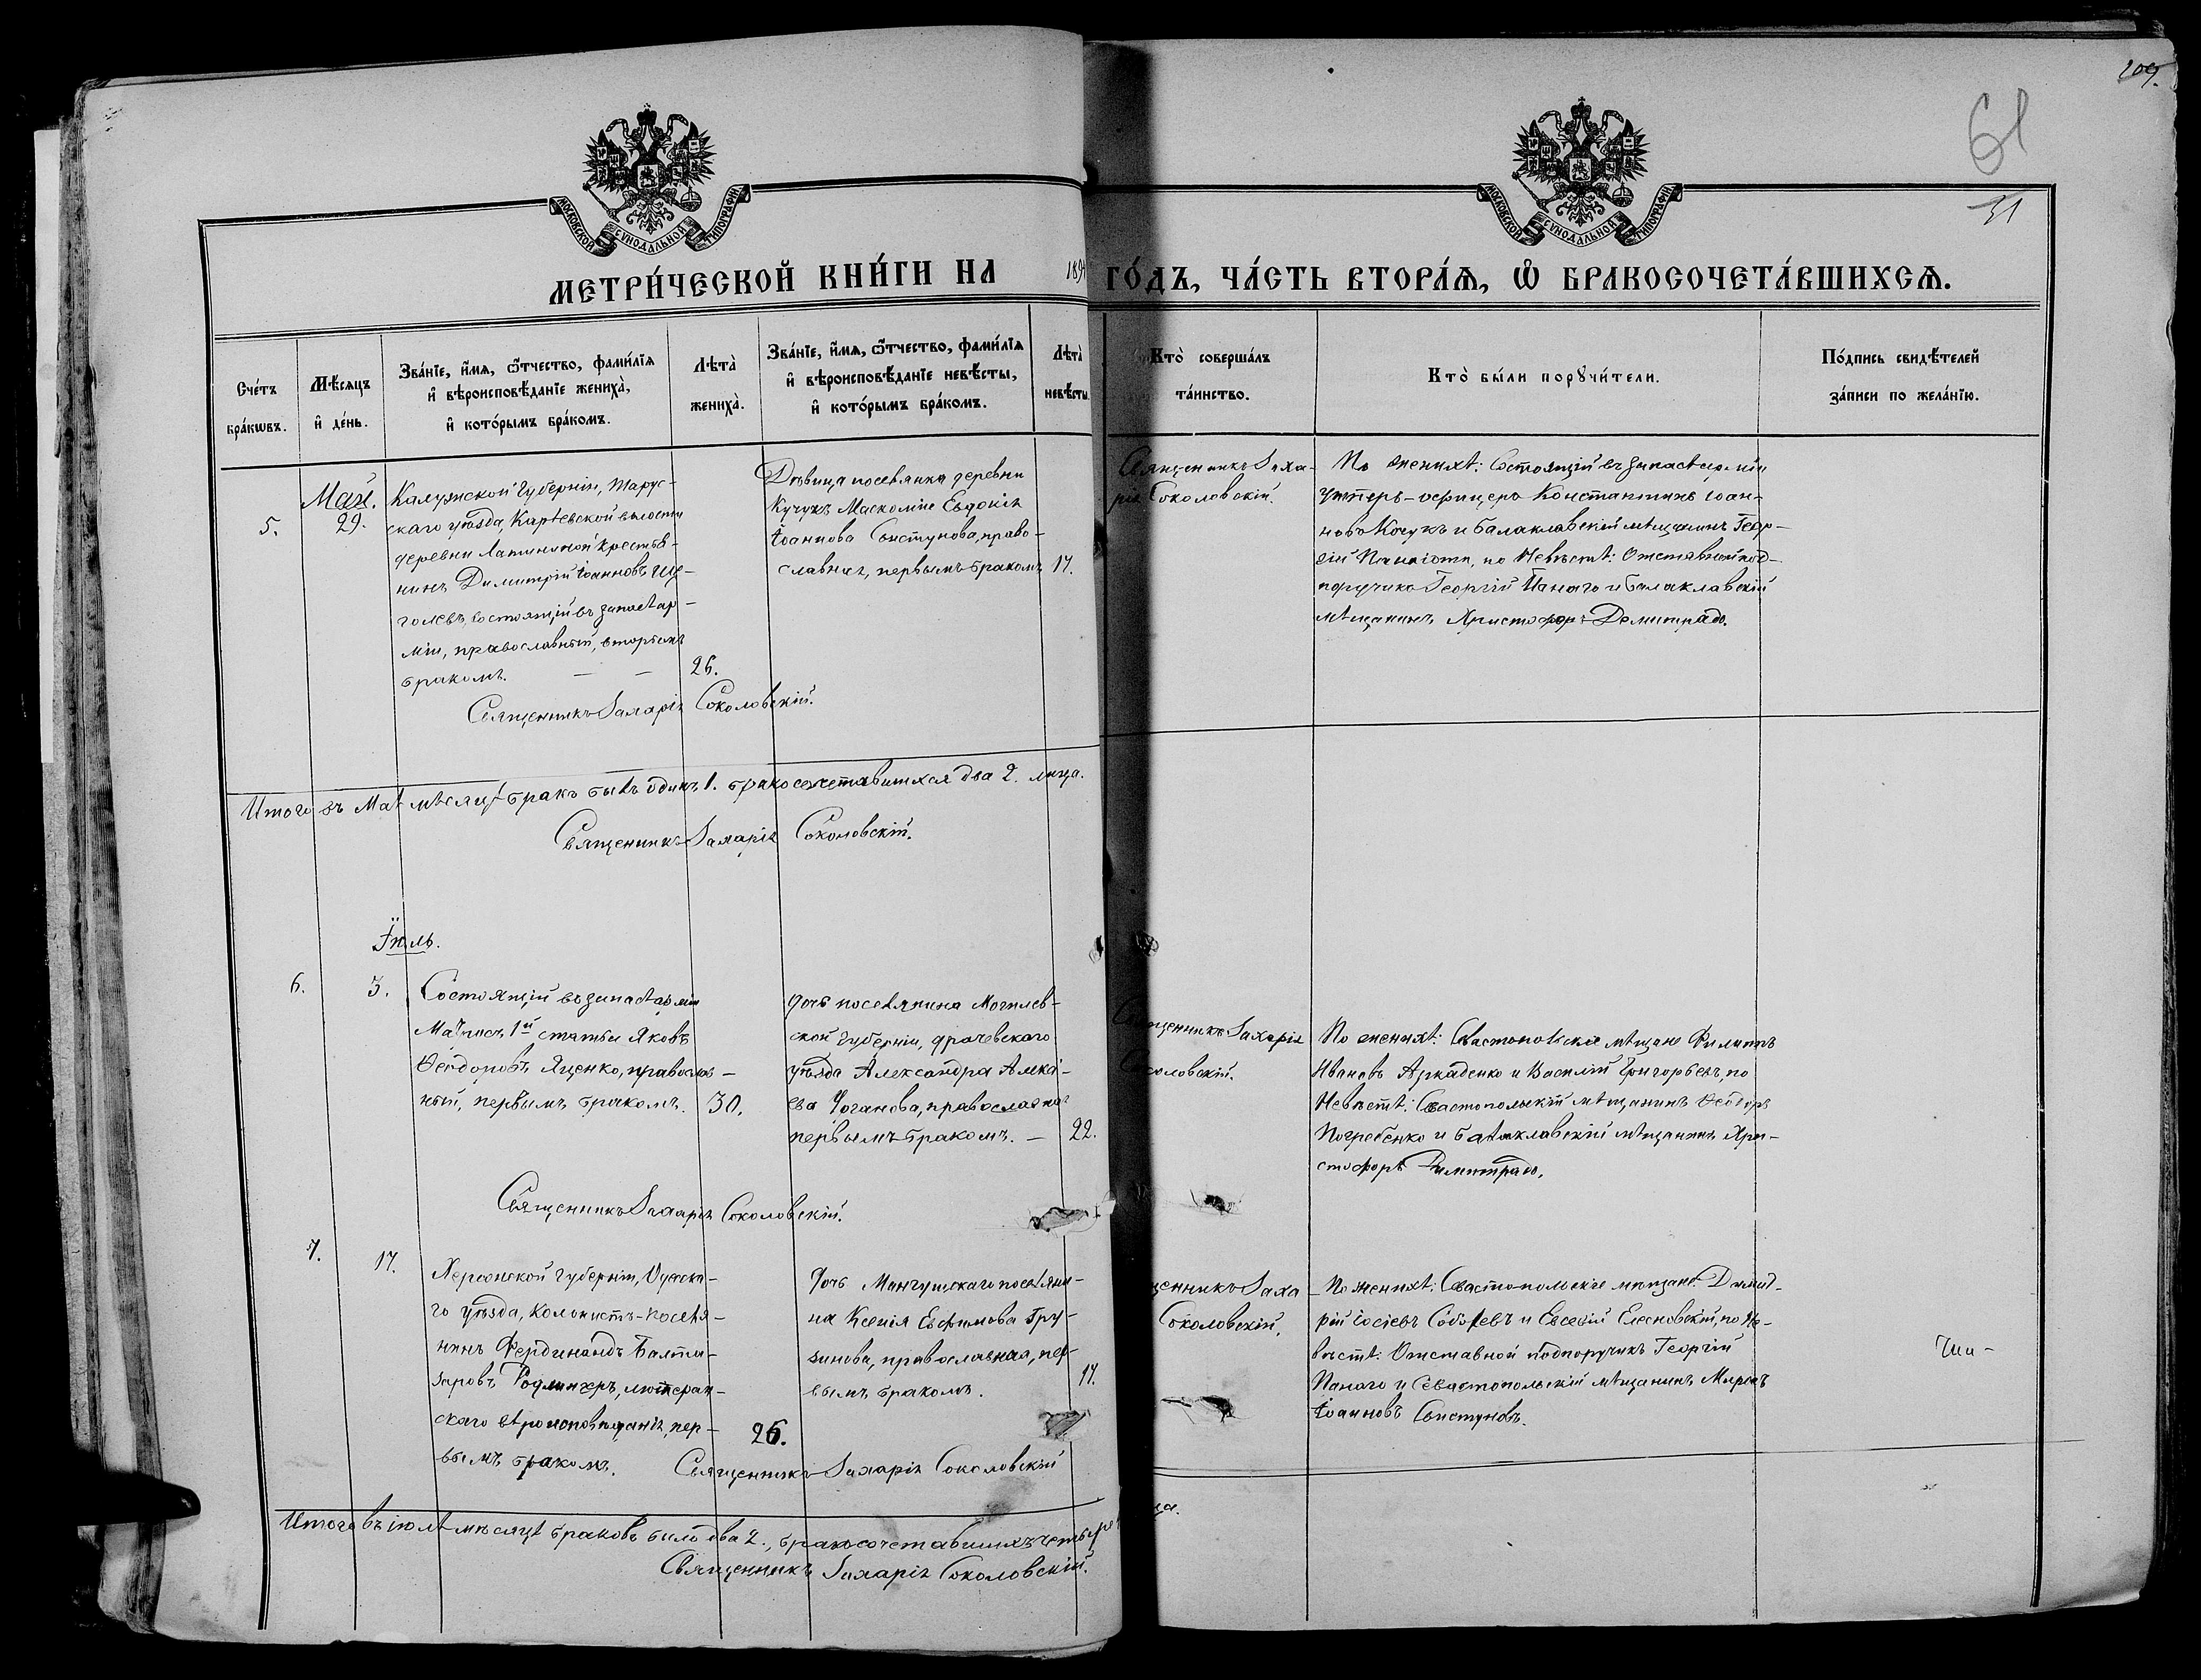 209.
61
51
МОСКОВСКОЙ СУНОДАЛЬНОЙ ТИПОГРАФІИ
МОСКОВСКОЙ СУНОДАЛЬНОЙ ТИПОГРАФІИ
МЕТРИ́ЧЕСКОЙ КНИ́ГИ НА 189 ГО́ДЪ, ЧА́СТЬ ВТОРА́Ѧ, Ѽ БРАКОСОЧЕТА́ВШИХСѦ.
Сче́тъ
бра́кѡвъ.
Мѣ́сѧцъ
и҆ де́нь.
Зва́нїе, и҆́мѧ, ѻ҆́тчество, фами́лїѧ
и҆ вѣроисповѣ́данїе жениха̀,
и҆ кото́рымъ бра́комъ.
Лѣта̀
жениха̀.
Зва́нїе, и҆́мѧ, ѻ҆́тчество, фами́лїѧ
и҆ вѣроисповѣ́данїе невѣ́сты,
и҆ кото́рымъ бра́комъ.
Лѣта̀
невѣ́сты.
Кто̀ соверша́лъ
та́инство.
Кто̀ бы́ли порꙋчи́тели.
По́дпись свидѣ́телей
за́писи по жела́нїю.
5.
Май.
29.
Калужской Губерніи, Тарус-
скаго уѣзда, Каревской волости
деревни крестья-
нинъ Димитрій Іоанновъ Ще-
голевъ, состоящій въ запасѣ ар-
міи, православный, вторымъ
бракомъ. — —
26.
Дѣвица поселянка деревни
Кучукъ Мускомие Евдокія
Іоаннова Свистунова, право-
славная, первымъ бракомъ
17.
Священникъ Заха-
рія Соколовскій.
По женихѣ: Состоящій въ запасѣ арміи
унтеръ-офицеръ Константинъ Іоан-
новъ Кочукъ и Балаклавскій мѣщанинъ Геор-
гій по Невѣстѣ: Отставной под-
поручикъ Георгій Панаго и Балаклавскій
мѣщанинъ Христофоръ Демитрадо.
Священникъ Захарія Соколовскій.
Итого въ Маѣ мѣсяцѣ бракъ былъ одинъ 1. бракосочетавшихся два 2. лица.
Священникъ Захарія Соколовскій.
Іюль.
6.
3.
Состоящій въ запасѣ арміи
Матросъ 1й статьи Яковъ
Ѳеодоровъ Яценко, православ-
ный, первымъ бракомъ.
30.
Дочь поселянина Могилев-
ской Губерніи,
уѣзда Александра Алекѣ-
ева православная
первымъ бракомъ. —
22.
Священникъ Захарія
Соколовскій.
По женихѣ: Севастопольскіе мѣщане Филиппъ
Ивановъ Аркаденко и Василій Григорьевъ, по
Невѣстѣ: Севастопольскій мѣщанинъ Ѳеодоръ
Погребенко и Балаклавскій мѣщанинъ Хри-
стофоръ Димитрадо,
Священникъ Захарія Соколовскій.
7.
17.
Херсонской губерніи, Одесска-
го уѣзда, колонистъ-поселя-
нинъ Фердинандъ Балта-
заровъ лютеран-
скаго вѣроисповѣданія, пер-
вымъ бракомъ.
26.
Дочь Мангушскаго поселяни-
на Ксенія Евфимова Гру-
зинова, православная, пер-
вымъ бракомъ.
17.
щенникъ Заха
Соколовскій.
По женихѣ: Севастопольскіе мѣщане Димит-
рій Іосіевъ и Евсевій по Не-
вѣстѣ: Отставной подпоручикъ Георгій
Панаго и Севастопольскій мѣщанинъ Маркъ
Іоанновъ Свистуновъ.
Священникъ Захарія Соколовскій
Итого въ іюлѣ мѣсяцѣ браковъ было два 2., бракосочетавшихъ четыре
ца.
Священникъ Захарія Соколовскій.